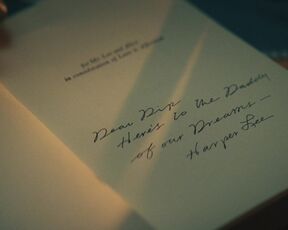 for Mr. Lee and Alice
in consideration of Love & Affection
Dear Dip
Here's to the Daddy
of our Dreams —
Harper Lee